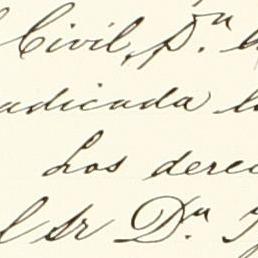 Civil, Dn
adicada
Los derec
l Sr Dn